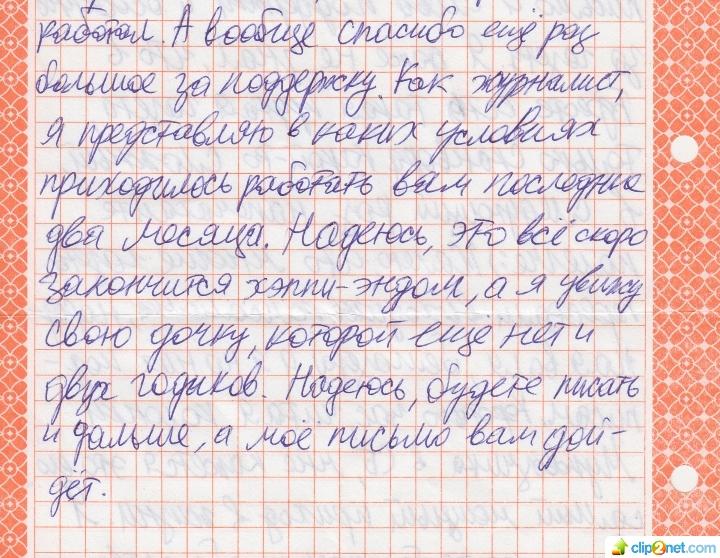 работал. А вообще спасибо ещё раз
большое за поддержку. Как журналист,
я представляю в каких условиях
приходилось работать вам последние
два месяца. Надеюсь, это всё скоро
закончится хэппи-эндом, а я увижу
свою дочку, которой ещё нет и
двух годиков. Надеюсь, будете писать
и дальше, а моё письмо вам дой-
дёт.
clip2net.com